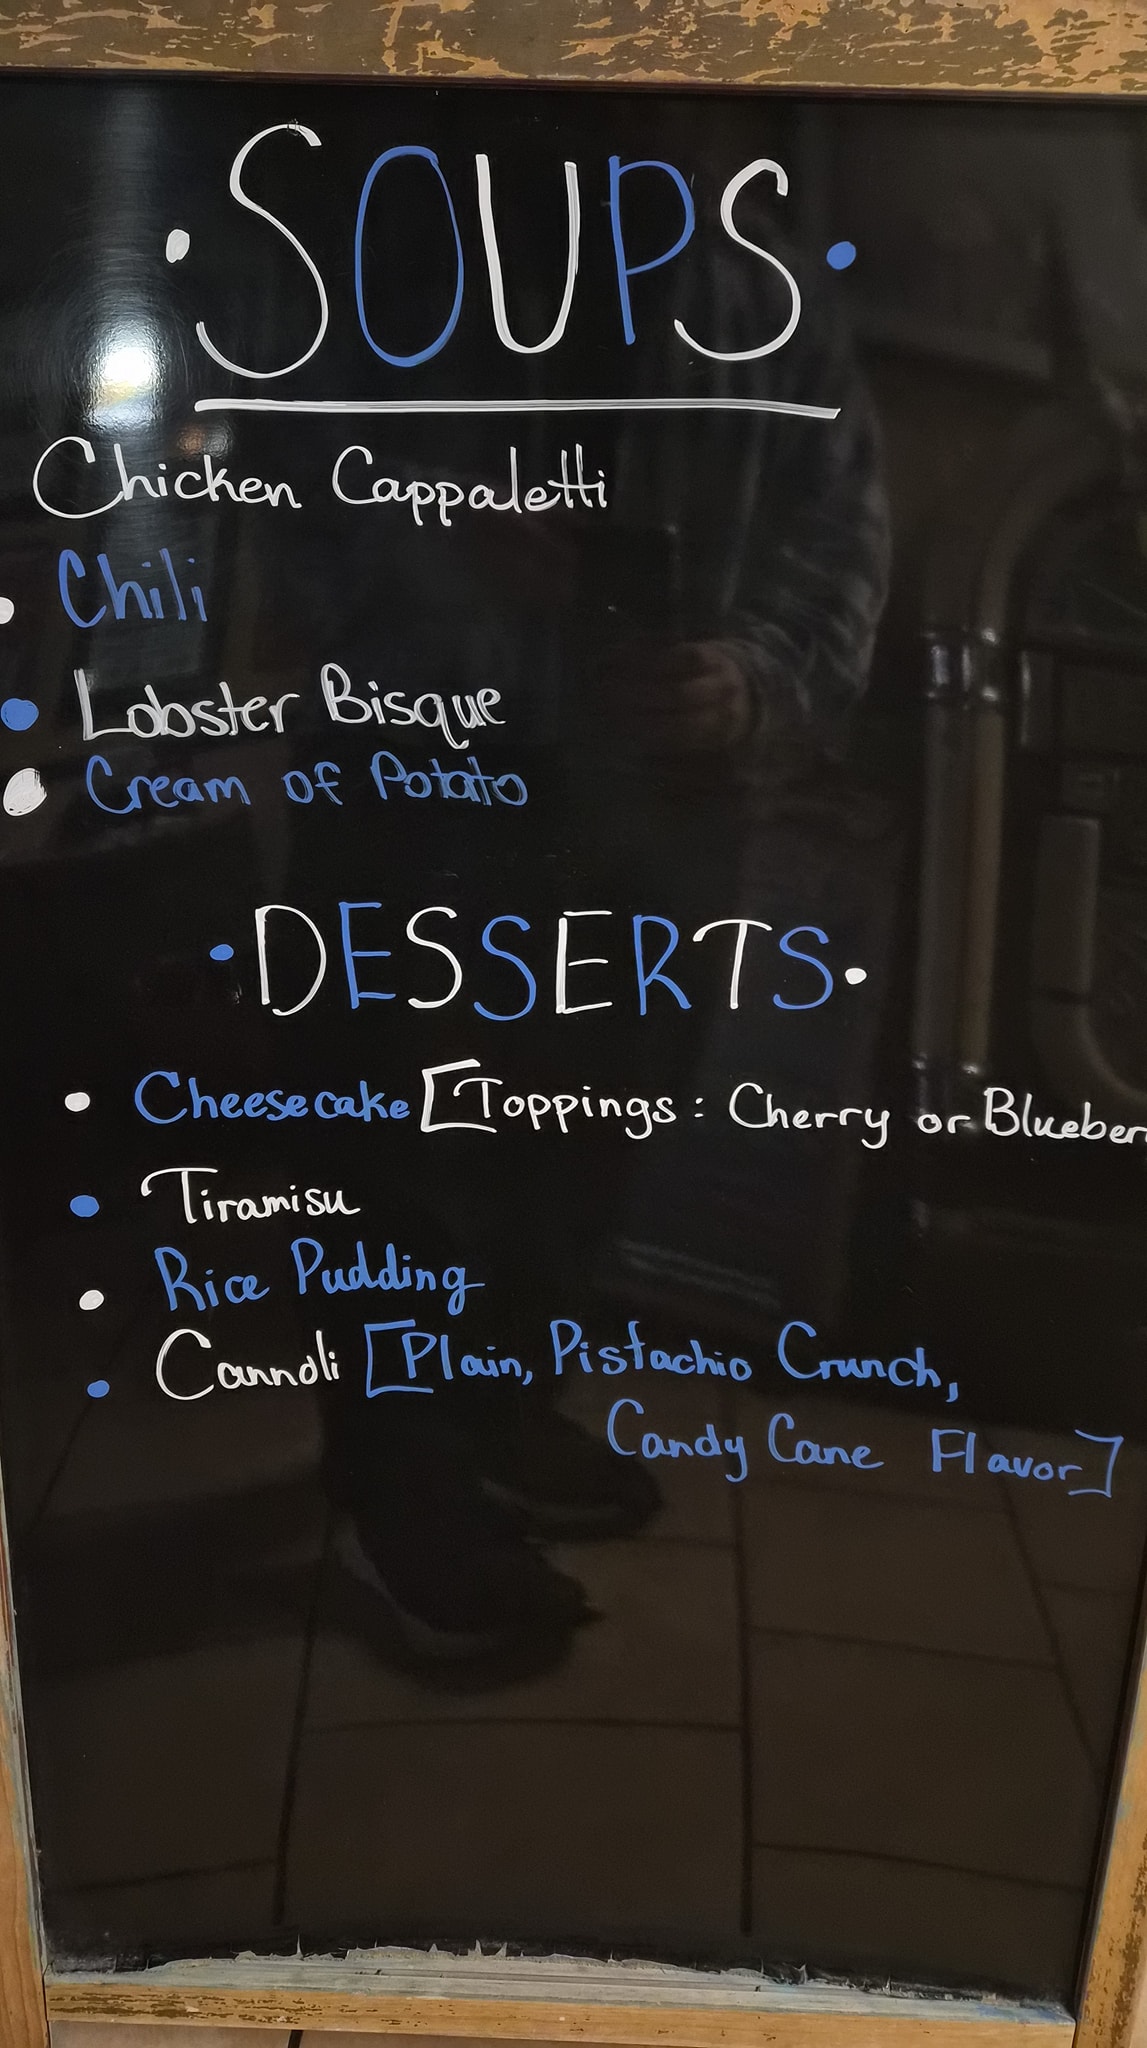 ·SOUPS·
Chicken Cappaletti
• Chili
• Lobster Bisque
• Cream of Potato
·DESSERTS·
• Cheesecake [Toppings: Cherry or Blueber
• Tiramisu
• Rice Pudding
• Cannoli [Plain, Pistachio Crunch,
Candy Cane Flavor]